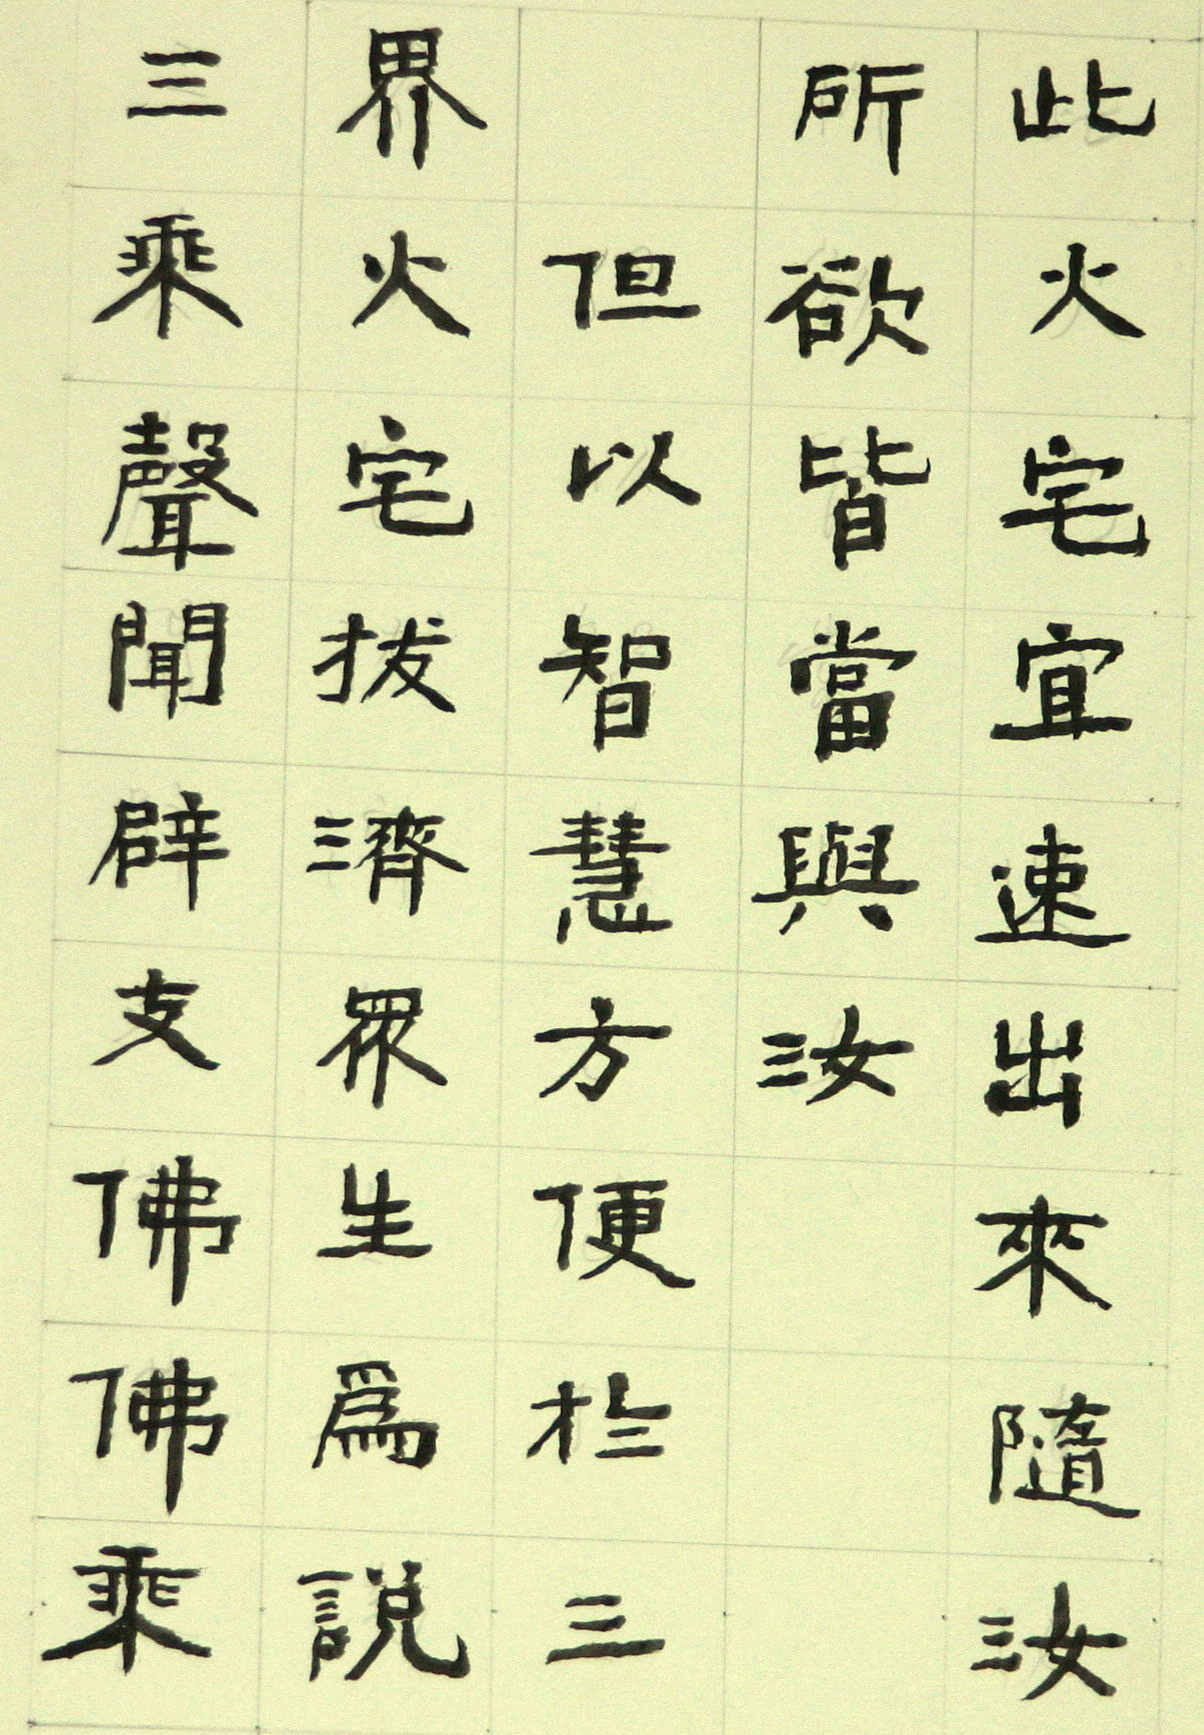 此火宅宜速出來隨汝
所欲皆當與汝
但以智慧方便於三
界火宅拔濟眾生爲說
三乘聲聞辟支佛佛乘